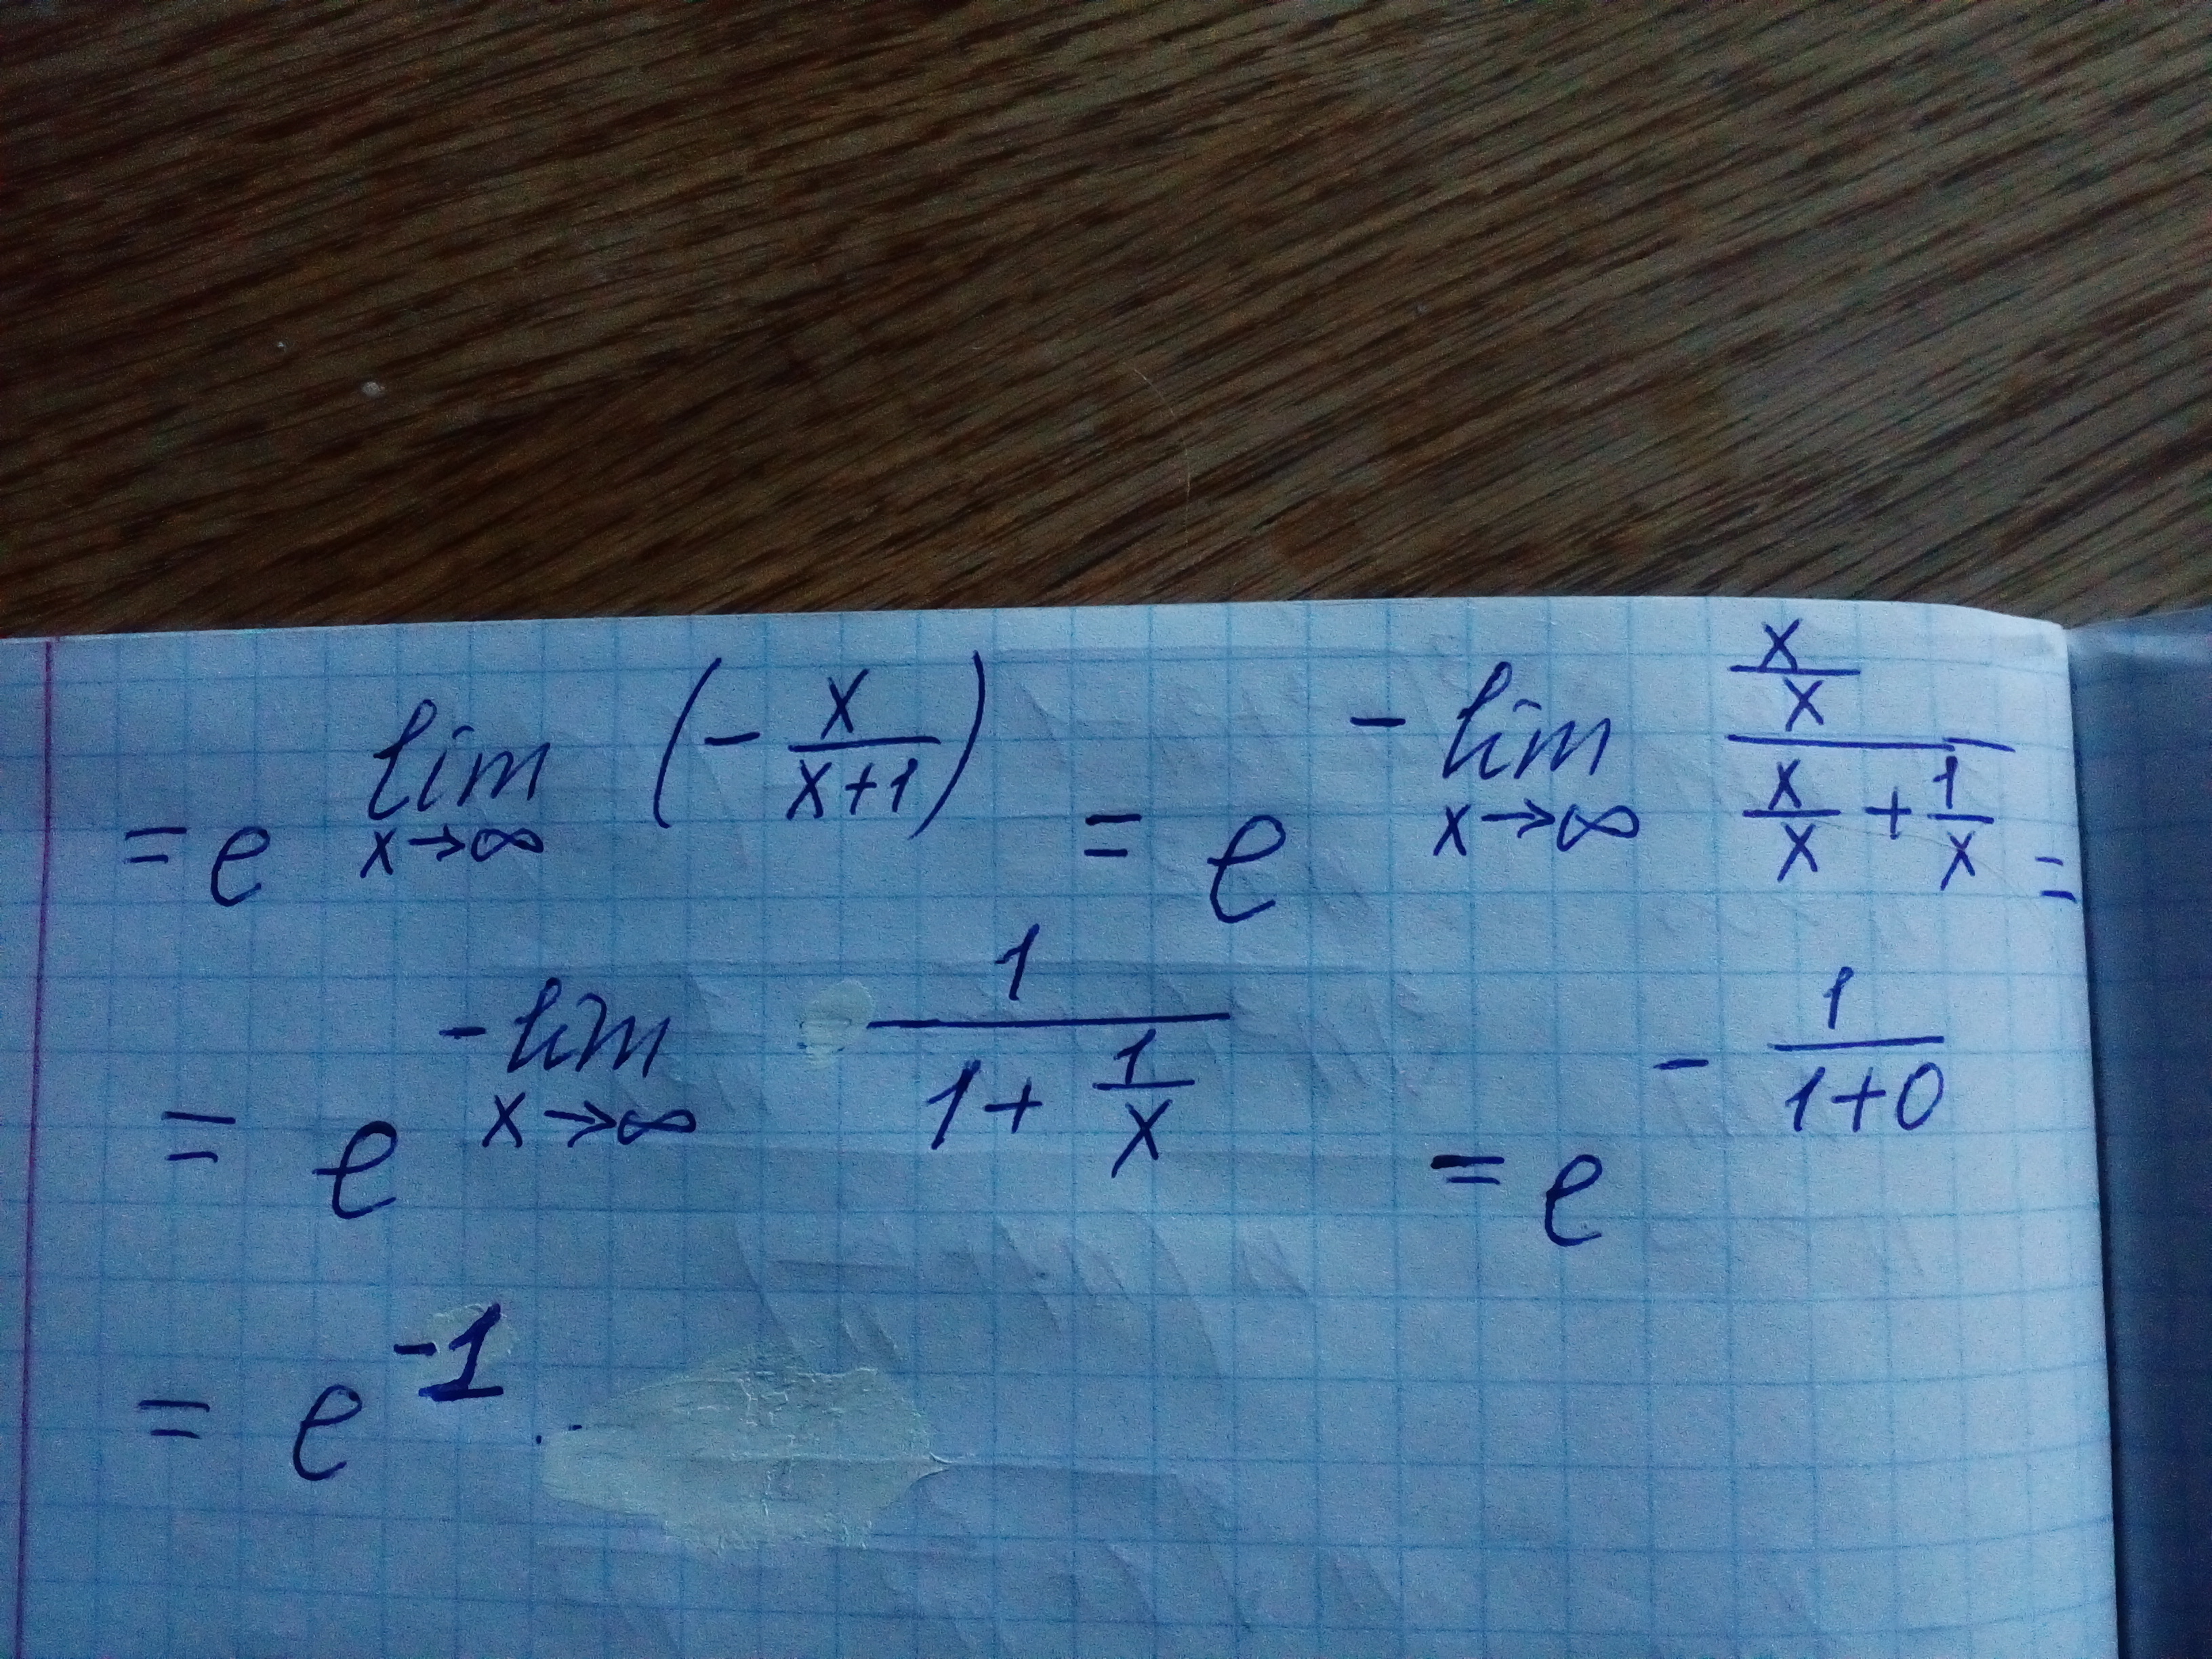 = e^{lim_{x→∞} (-\frac{x}{x+1})} = e^{-lim_{x→∞} \frac{\frac{x}{x}}{\frac{x}{x}+\frac{1}{x}}} =
= e^{-lim_{x→∞} \frac{1}{1+\frac{1}{x}}} = e^{-\frac{1}{1+0}}
= e^{-1}.